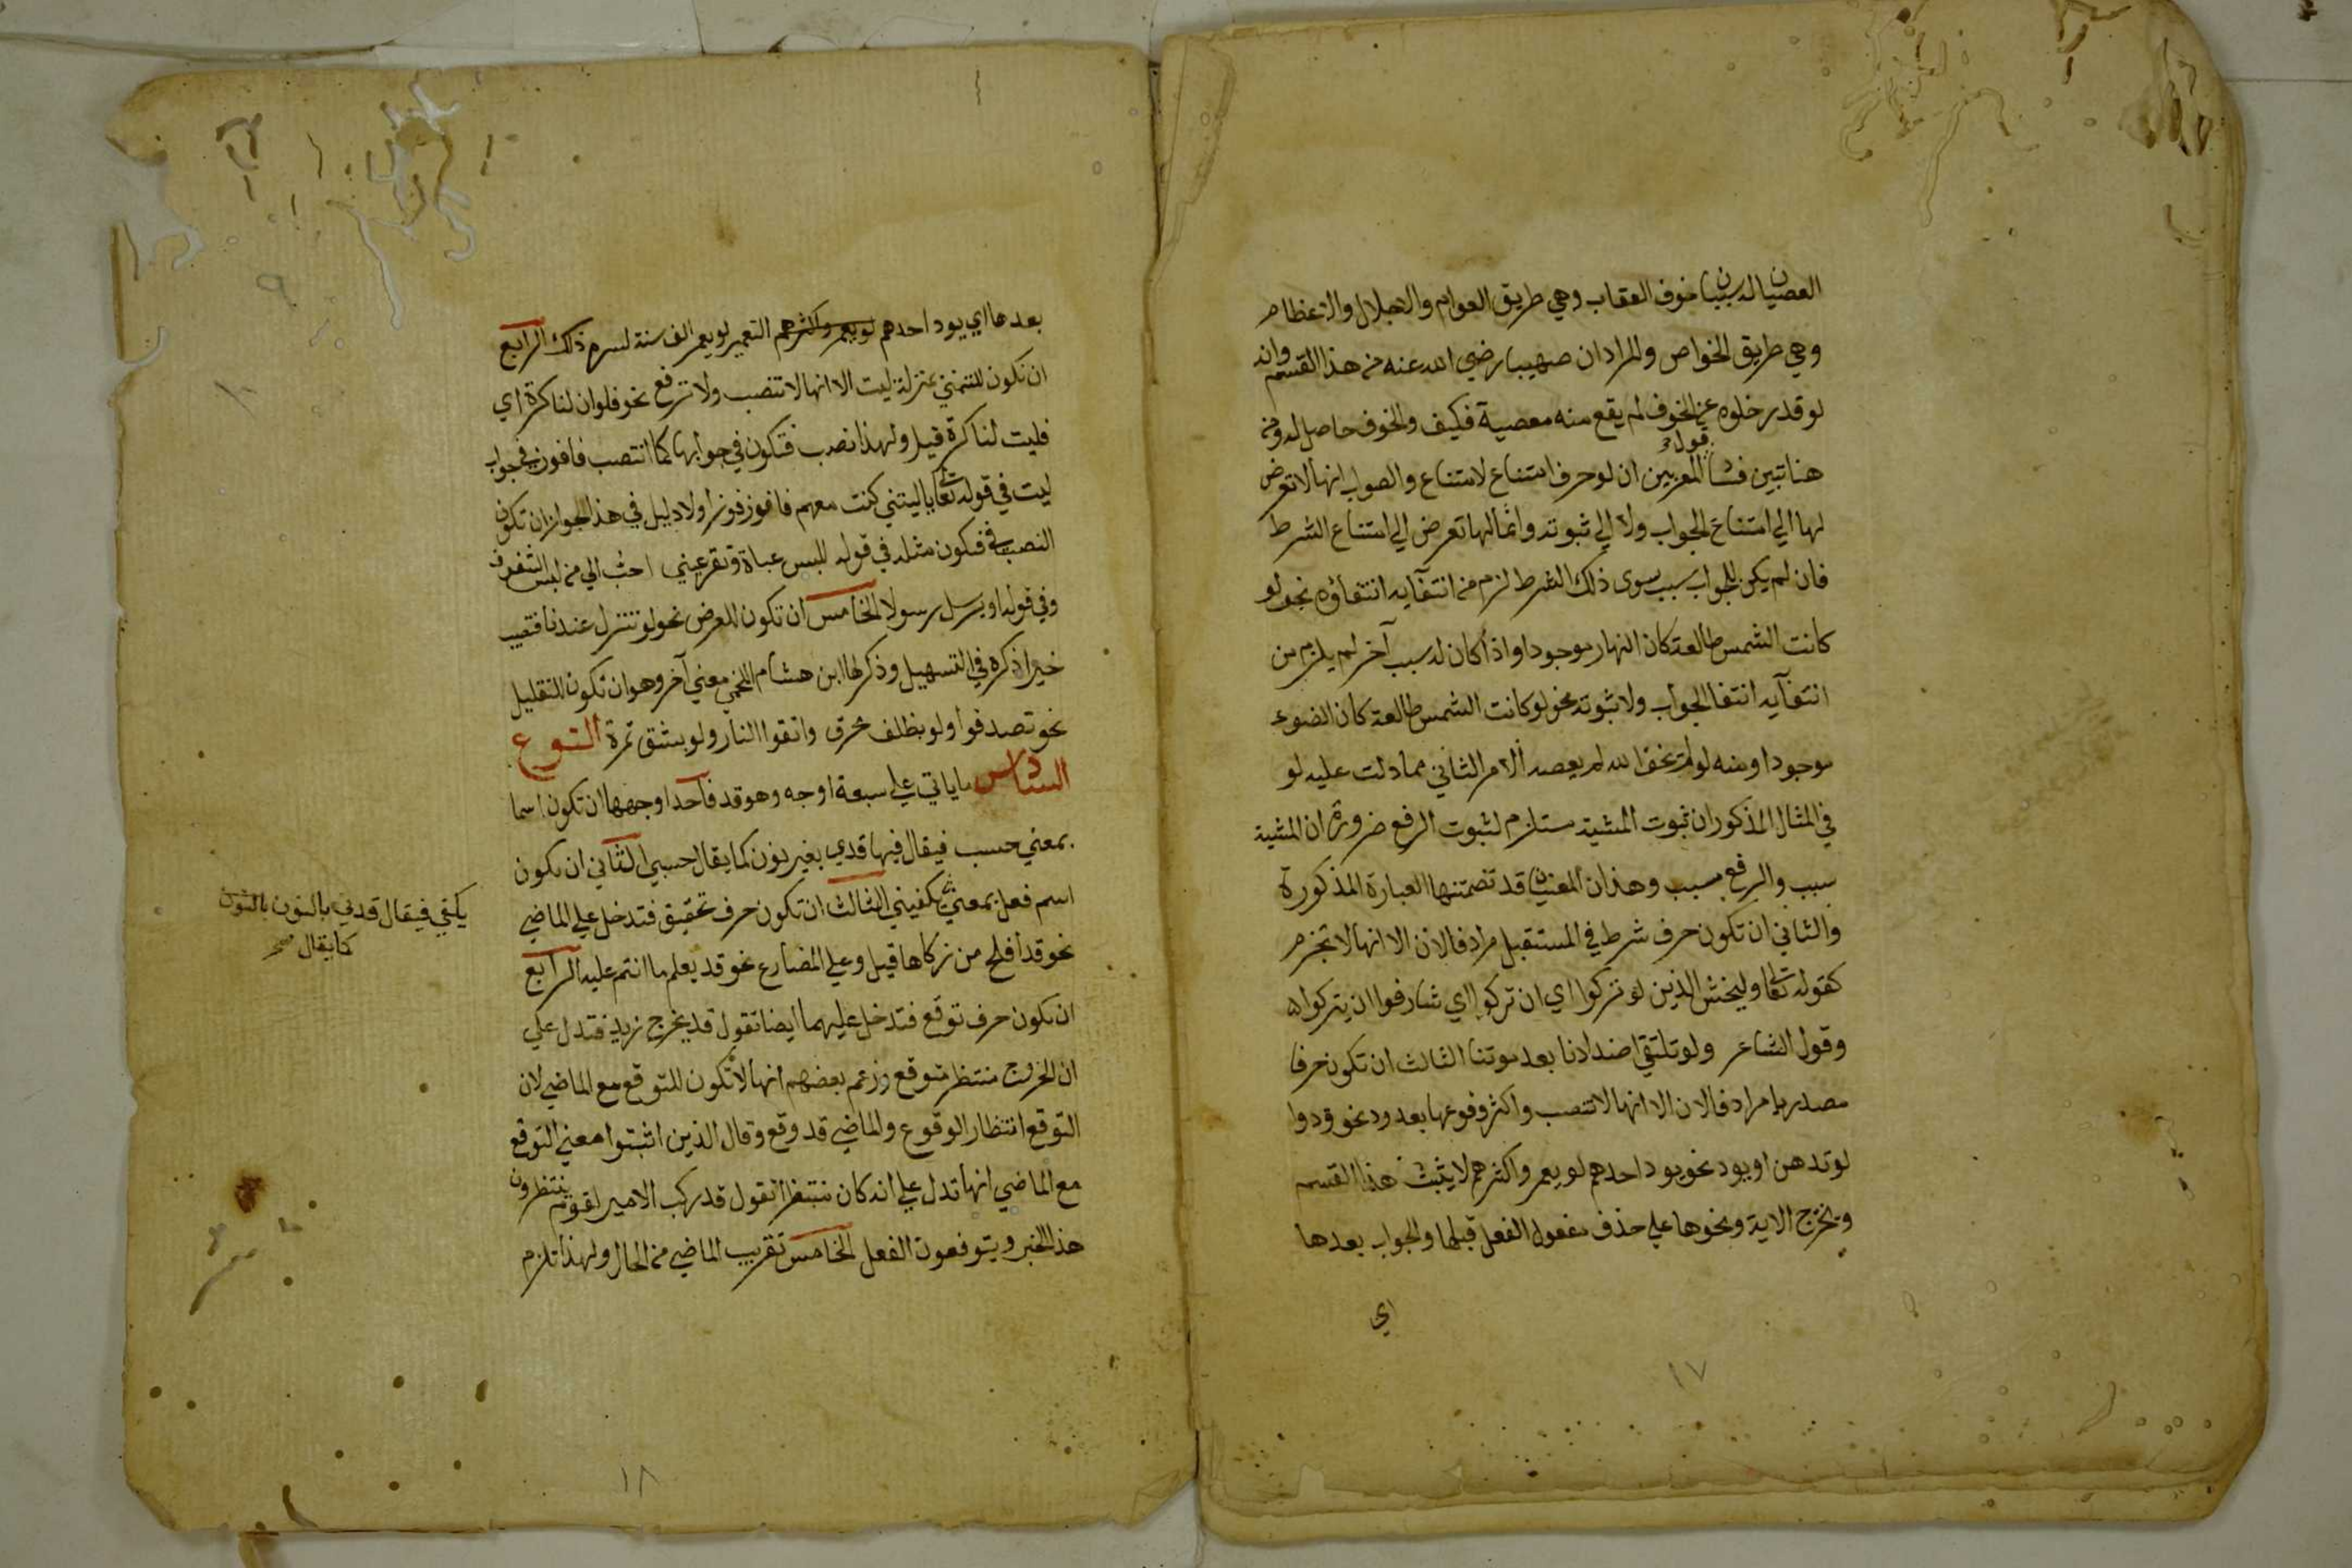 العصيان له سببان خوف العقاب وهي طريق العوام والاجلال والاعظام
وهي طريق الخواص والمراد ان صهيبا رضي الله عنه من هذا القسم وانه
لو قدر خلوه عن الخوف لم يقع منه معصية فكيف والخوف حاصل له ومن
هنا تبين فساد قول المعربين ان لو حرف امتناع لامتناع والصواب انها لا تعرض
لها الي امتناع الجواب ولا الي ثبوته وانما لها تعرض الي امتناع الشرط
فان لم يكن للجواب سبب سوى ذلك الشرط لزم من انتفآيه انتفاؤه نحو لو
كانت الشمس طالعة كان النهار موجودا واذا كان له سبب آخر لم يلزم من
انتفآيه انتفا الجواب ولا ثبوته نحو لو كانت الشمس طالعة كان الضوء
موجودا ومنه لو لم يخف الله لم يعصه الامر الثاني مما دلت عليه لو
في المثال المذكور ان ثبوت المشية مستلزم لثبوت الرفع ضرورة ان المشية
سبب والرفع مسبب وهذان المعنيان قد تضمنتها العبارة المذكورة
والثاني ان تكون حرف شرط في المستقبل مرادفا لان الا انها لا تجزم
كقوله تعالى وليخش الذين لو تركوا اي ان تركوا اي شارفوا ان يتركوا
وقول الشاعر ولو تلتقي اصداؤنا بعد موتنا الثالث ان تكون حرفا
مصدريا مرادفا لان الا انها لا تنصب واكثر وقوعها بعد ود نحو ودوا
لو تدهن او يود نحو يود احدهم لو يعمر واكثرهم لا يثبت هذا القسم
ويخرج الاية ونحوها علي حذف مفعول الفعل قبلها والجواب بعدها
اي
١٧
بعدها اي يود احدهم لو يعمر واكثرهم التعمير لو يعمر الف سنة لسره ذلك الرابع
ان تكون للتمني بمنزلة ليت الا انها لا تنصب ولا ترفع نحو فلو ان لنا كرة اي
فليت لنا كرة قيل ولهذا نصب فتكون في جوابها كما انتصب فافوز في جواب
ليت في قوله تعالى يا ليتني كنت معهم فافوز فوزا ولا دليل في هذا الجواز ان تكون
النصب في فتكون مثله في قوله للبس عباة وتقر عيني احب الي من لبس الشفوف
وفي قوله او يرسل رسولا الخامس ان تكون للعرض نحو لو تنزل عندنا فتصيب
خيرا ذكره في التسهيل وذكر لها ابن هشام اللخمي معني آخر وهو ان تكون للتقليل
نحو تصدقوا ولو بظلف محرق واتقوا النار ولو بشق تمرة النوع
السادس ما ياتي علي سبعة اوجه وهو قد فاحد اوجهها ان تكون اسما
بمعني حسب فيقال فيها قدي بغير نون كما يقال حسبي الثاني ان تكون
اسم فعل بمعني يكفيني الثالث ان تكون حرف تحقيق فتدخل علي الماضي
نحو قد افلح من زكاها قيل وعلي المضارع نحو قد يعلم ما انتم عليه الرابع
ان تكون حرف توقع فتدخل عليهما ايضا تقول قد يخرج زيد فتدل علي
ان الخروج منتظر متوقع وزعم بعضهم انها لا تكون للتوقع مع الماضي لان
التوقع انتظار الوقوع والماضي قد وقع وقال الذين اثبتوا معني التوقع
مع الماضي انها تدل علي انه كان منتظرا تقول قد ركب الامير لقوم ينتظرون
هذا الخبر ويتوقعون الفعل الخامس تقريب الماضي من الحال ولهذا تلزم
يكفي فيقال قدني بالنون بالنون
كما يقال صح
١٨